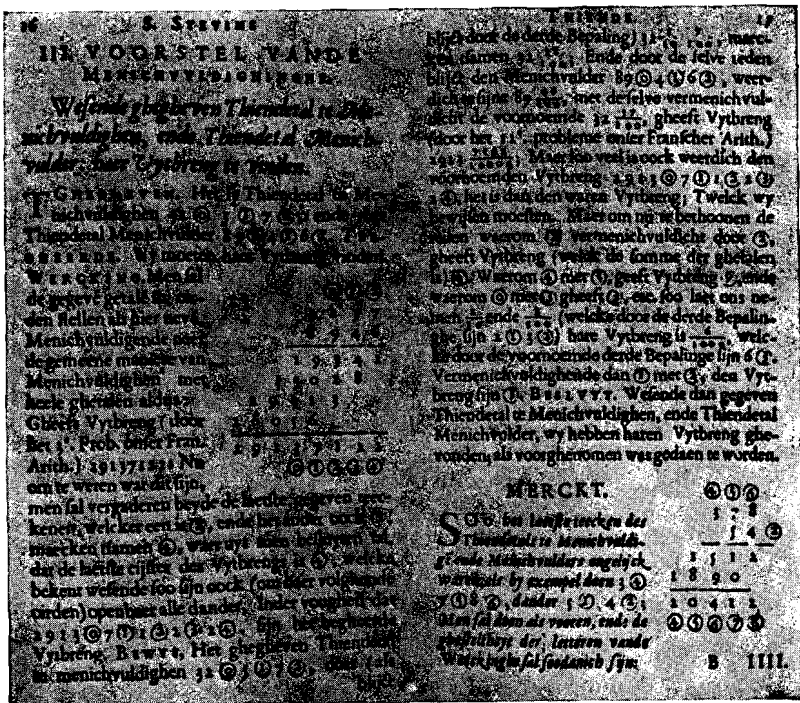 16 S. STEVINS
III. VOORSTEL VANDE
MENICHVVLDIGHINGHE.
Wesende ghegheven Thiendetal te Me-
nichvuldighen, ende Thiendetal Menich-
vulder: haer Vytbreng te vinden.
T'GHEGHEVEN. Het sy Thiendetal te Me-
nichvuldighen 32 ⓪ 5 ① 7 ②, ende
Thiendetal Menichvulder 89 ⓪ 4 ① 6 ②.
Wy moeten haer Vytbreng vinden.
WERCKING. Men sal
de gegevē getalē in oir-
den stellen als hier nevē,
Menichvuldigende naer
de gemeene maniere van
Menichvuldighen met
heele ghetalen aldus:
Gheeft Vytbreng (door
het 3ᵉ. Prob. onser Fran.
Arith.) 29137122: Nu
om te weten wat dit sijn,
men sal vergaderen beyde de laetste gegeven tee-
kenen, welcker een is ②, ende het ander oock ②,
maecken tsamen ④, waer uyt men besluyten sal,
dat de laetste cijffer des Vytbrengs is ④, welcke
bekent wesende soo sijn oock (om haer volghende
oirden) openbaer alle dander, Inder voughen dat
2913 ⓪ 7 ① 1 ② 2 ③ 2 ④, sijn het begheerde
Vytbreng. BEWYS, Het ghegheven Thiendetal
te menichvuldighen 32 ⓪ 5 ① 7 ②, doet (als
blijct
⓪ ① ②
3 2 5 7
8 9 4 6
1 9 5 4 2
1 3 0 2 8
2 9 3 1 3
2 6 0 5 6
2 9 1 3 7 1 2 2
⓪ ① ② ③ ④
THIENDE. 17
blijct door de derde Bepaling) 32 5/10 7/100, maec-
ken tsamen 32 57/100. Ende door de selve reden
blijct den Menichvulder 89 ⓪ 4 ① 6 ②, weer-
dich te sijne 89 46/100, met de selve vermenichvul-
dicht de voornoemde 32 57/100, gheeft Vytbreng
(door het 12ᵉ. probleme onser Franscher Arith.)
2913 7122/10000; Maer soo veel is oock weerdich den
voornoemden Vytbreng 2913 ⓪ 7 ① 1 ② 2 ③
2 ④, het is dan den waren Vytbreng; Twelck wy
bewijsen moesten. Maer om nu te bethoonen de
reden waerom ② vermenichvuldicht door ②,
gheeft Vytbreng (welck de somme der ghetalen
is) ④. Waerom ④ met ⑤, geeft Vytbreng ⑨, ende
waerom ⓪ met ③ gheeft ③, etc. soo laet ons ne-
men 2/10 ende 3/100 (welcke door de derde Bepalin-
ghe sijn 2 ① 3 ②) hare Vytbreng is 6/1000, welc-
ke door de voornoemde derde Bepalinge sijn 6 ③.
Vermenichvuldighende dan ① met ②, den Vyt-
breng sijn ③. BESLVYT. Wesende dan gegeven
Thiendetal te Menichvuldighen, ende Thiendetal
Menichvulder, wy hebben haren Vytbreng ghe-
vonden, als voorghenomen was gedaen te worden.
MERCKT.
SOO het laetste teecken des
Thiendetals te menichvuldi-
gen ende Menichvulders ongelijck
waren, als by exempel deen 3 ④
7 ⑤ 8 ⑥, dander 5 ① 4 ②;
Men sal doen als vooren, ende de
ghesteltheyt der letteren vande
Werckinghe sal soodanich sijn:
④ ⑤ ⑥
3 7 8
5 4 ②
1 5 1 2
1 8 9 0
2 0 4 1 2
④ ⑤ ⑥ ⑦ ⑧
B IIII.